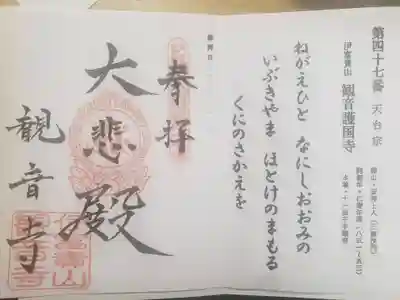 第四十七番 天台宗
伊富貴山 観音護国寺
本尊・十一面千手観音
ねがえひと なにしおおみの
いぶきやま ほとけのまもる
くにのさかえを
奉拝
大悲殿
観音寺